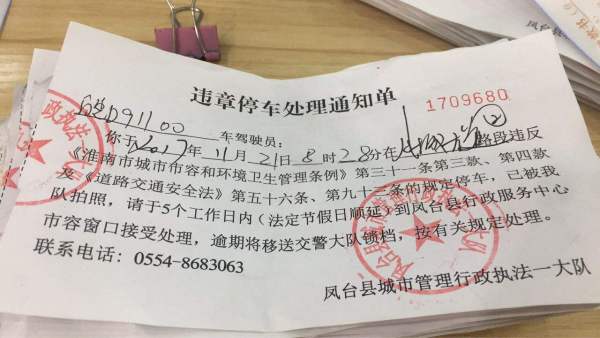 违章停车处理通知单
1709680
D91100 车驾驶员:
你于2017年11月21日8时28分在 路段违反
《淮南市城市市容和环境卫生管理条例》第三十一条第三款、第四款
及《道路交通安全法》第五十六条、第九十三条的规定停车,已被我
队拍照,请于5个工作日内(法定节假日顺延)到凤台县行政服务中心
市容窗口接受处理,逾期将移送交警大队锁档,按有关规定处理。
联系电话:0554-8683063
凤台县城市管理行政执法一大队
政执法
凤台县